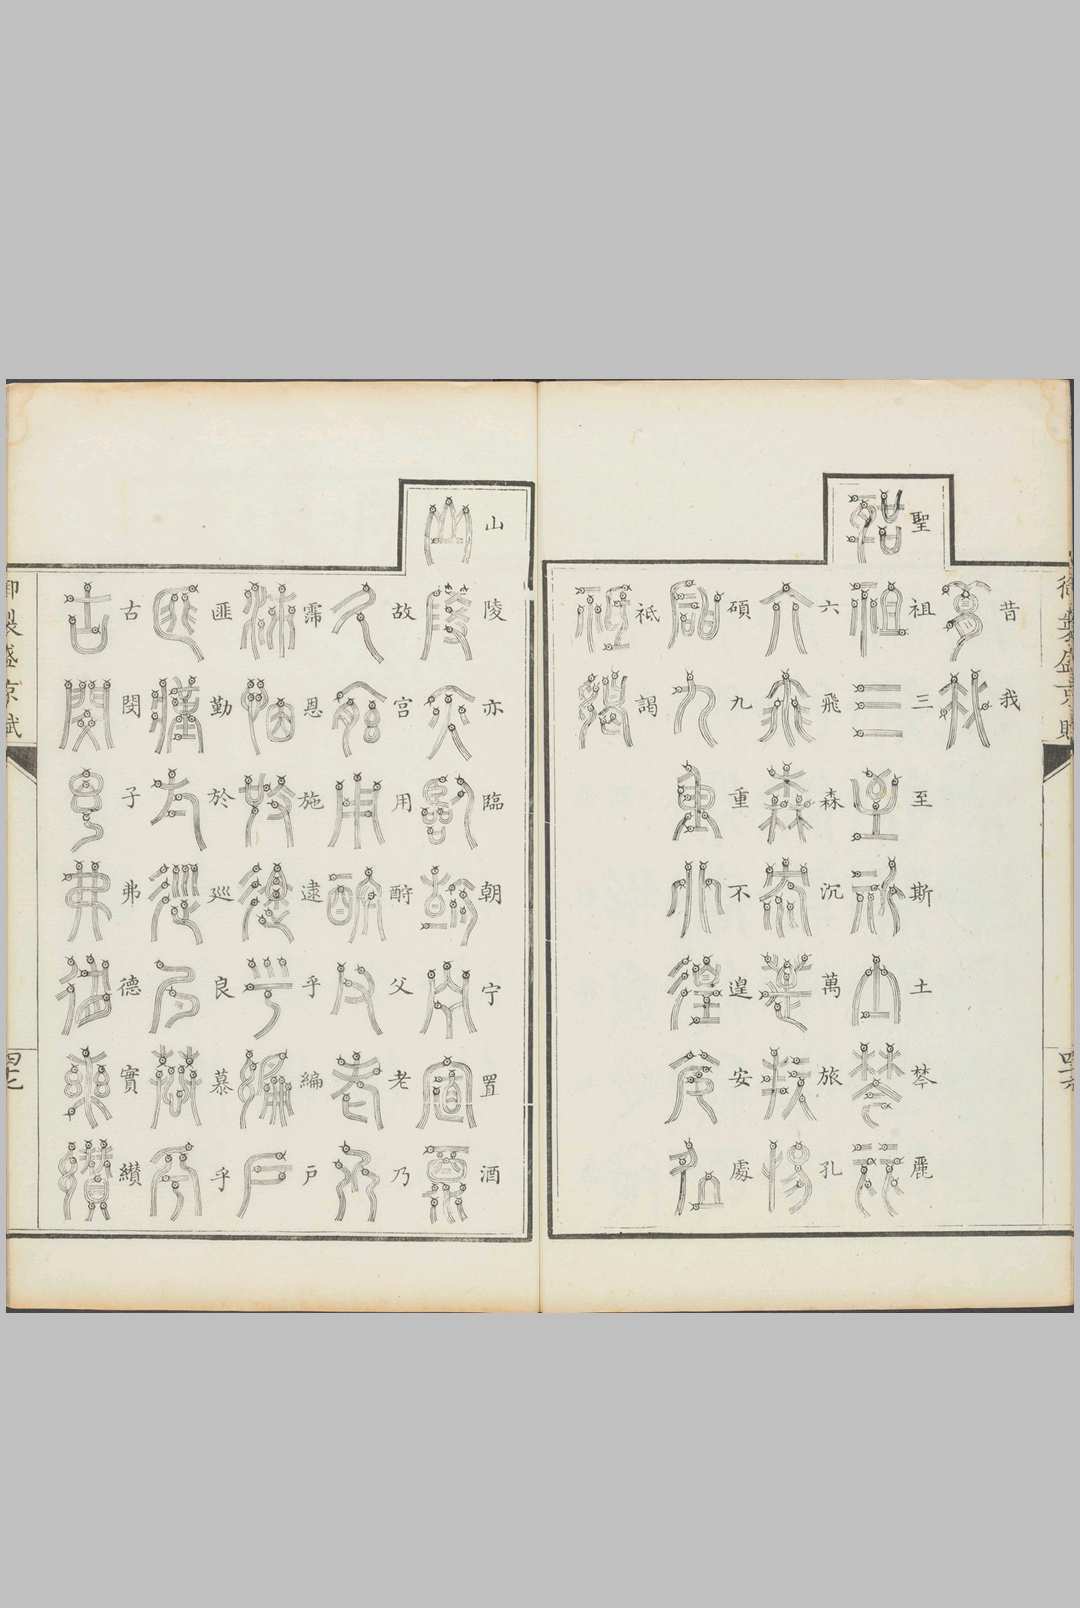 御製盛京賦
四十六
昔我
聖祖三至斯土棽麗
六飛森沉萬旅孔
碩九重不遑安處
祗謁
山陵亦臨朝宁置酒
故宮用酹父老乃
霈恩施逮乎編戶
匪勤於巡良慕乎
古閔子弗德實纘
御製盛京賦
四十七